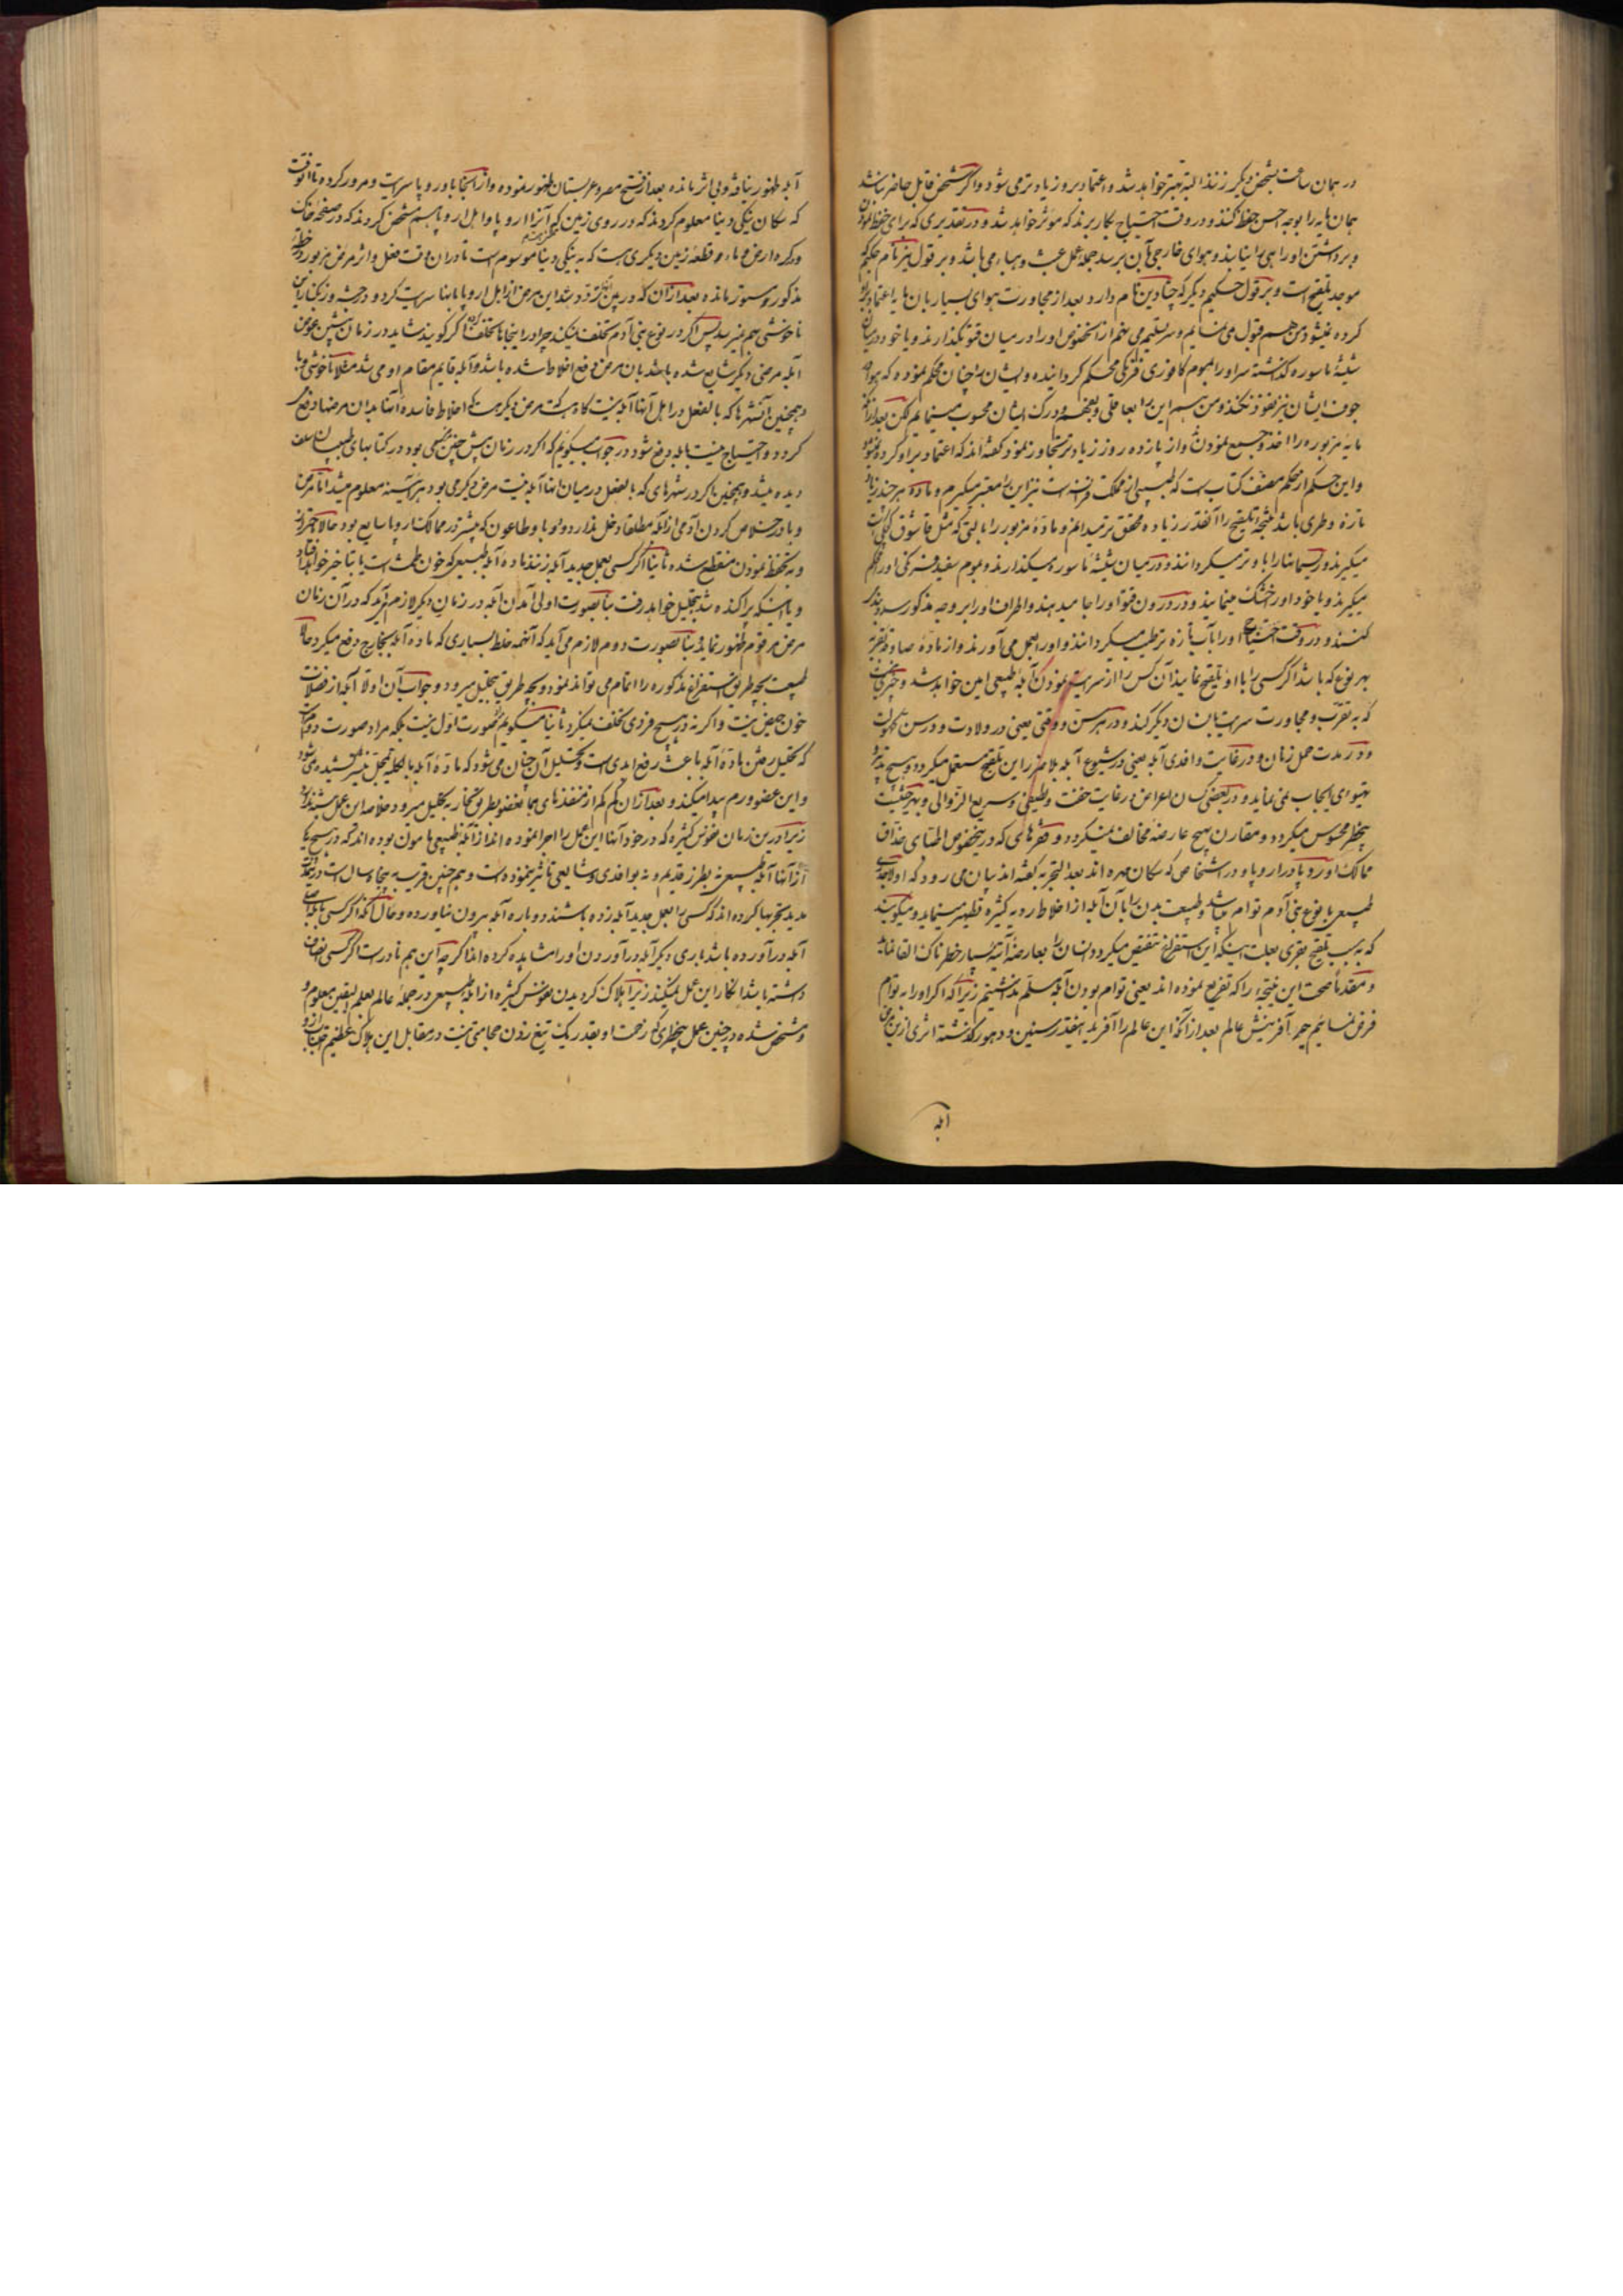 در همان ساعت بشخص دیگر زنند البته معتبر خواهد شد و اعتماد برو زیادتر می شود و اگر شخص قابل حاضر نباشد
همان مایه را بوجه احسن حفظ کنند و در وقت احتیاج بکار برند که مؤثر خواهد شد و در تقدیری که برای حفظ نمودن
و برداشتن او را هی را نیابند و هوای خارجی بآن برسد جمله عمل عبث و هباء می باشد و بر قول نیز نام حکیم
موجد تلقیح است و بر قول حکیم دیگر که نام دارد بعد از مجاورت هوای بسیار بآن مایه اعتماد
کرده نمیشود من هم قبول می نمایم و سر تسلیم می نهم ازین خصوص او را در میان قتو بگذارند و یا خود در میان
شیشه ماسوره گذاشته سر او را بموم کافوری فرنگی محکم گردانیده و ایشان را چنان محکم نموده که هوا
جوف ایشان نیز نفوذ نکند و من بهتر این را بعاقلی و بفهم و درک ایشان محسوب مینمایم لکن بعد از آنکه
مایه مزبوره را اخذ و جمیع نمودن و از یازده روز زیادتر تجاوز نمود گفته اند که اعتماد بر او کرده نمیشود
و این حکم از محکم مصنف کتاب است که طبیبی از مملکت فرانسه است نیز این را معتبر میگیرم و ماده هر چند زیاد
تازه و طری باشد نتیجه تلقیح را آنقدر زیاده محقق تر میدانم و ماده مزبور را با لتی که مثل قاشوق
میگیرند و ریسمانها را با و تر میگردانند و در میان شیشه ماسوره میگذارند و بموم سفید فرنگی او را محکم
میگیرند و یا خود او را خشک مینمایند و در درون قتو او را جا میدهند و اطراف او را بر وجه مذکور سد و بند
کنند و در وقت احتیاج او را بآب تازه ترطیب میگردانند و او را بعمل می آورند و از ماده صادقه بقریه
بهر نوع که باشد اگر کسی را با او تلقیح نمایند آن کس را از سرایت نمودن آبله طبیعی امین خواهد شد و
که به تقرب و مجاورت سرایت بانسان دیگر کند و در هر سن و وقتی یعنی در ولادت و در سن کهولت
و در مدت حمل زنان و در غایت وافدی آبله یعنی در شیوع آبله بلا ضرر این تلقیح مستعمل میگردد و هیچ
تهیؤی ایجاب نمی نماید و در بعضی کسان اعراض در غایت خفت و لطیفی و سریع الزوالی و بهر حیثیت
بیخطر محسوس میگردد و مقارن هیچ عارضه مخالف نمیگردد و فقرهای که در خصوص اطبای حذاق
ممالک اوروپا در اروپا و در اشخاصی که سکان مهره اند بعد التجربه گفته اند بیان می رود که اولا جدری
طبیعی با نوع بنی آدم توأم می باشد و طبیعت بدن را با آن آبله از اخلاط رویه کثیره تطهیر مینماید و میگویند
که به سبب تلقیح بقری بعلت اینکه این استفراغ تنقیص میگردد انسان را بعارضه آتیه بسیار خطرناک القا نماید
و مقدما صحت این نتیجه را که تفریع نموده اند یعنی توأم بودن آبله مسلم نداشتیم زیرا که اگر او را به توأم
فرض نمائیم چرا در آفرینش عالم بعد از آنکه این عالم را آفرید اینقدر سنین و دهور گذشته اثری ازین مرض
آبله
آبله ظهور نیافته و بی اثر مانده بعد از فتح مصر و عربستان ظهور نموده و از آنجا باوروپا سرایت و مرور کرده تا آنوقت
که سکان ینکی دنیا معلوم کردند که در روی زمین که آنرا اروپا و اهل اروپا همه مشخص کردند که در صفحه خاک
و کره ارض و ماء و قطعه زمین دیگری هست که به ینکی دنیا موسوم است تا در آن وقت فعل و اثر مرض مزبور در خطه
مذکور مستور مانده بعد از آن که در بین تردد شد این مرض از اهل اروپا بآنها سرایت کرد و درجه وزنکبار باین
ناخوشی هم نمیرسد پس اگر در نوع بنی آدم تخلف نمیکند چرا در اینجاها تخلف کرده اگر گویند شاید در زمان پیش عوض
آبله مرضی دیگر شایع شده باشد بآن مرض دفع اخلاط شده باشد و آبله قایم مقام او می شد مثلا ناخوشی وبا
و همچنین در آنشهرها که بالفعل در اهل آنها آبله نیست گاه هست مرض دیگر هست که اخلاط فاسده آنها بدان مرضها دفع
گردد و احتیاج نیست بآبله دفع شود در جواب میگویم که اگر در زمان پیش چنین مرضی بود در کتابهای طبیبان سلف
دیده میشد و همچنین اگر در شهرهای که بالفعل در میان آنها آبله نیست مرض دیگر می بود هر آینه معلوم میشد اما مرض
وبا در خلاص کردن آدمی از آبله مطلقا دخل ندارد و وبا و طاعون که پیشتر در ممالک اروپا شایع بود حالا
و به تحفظ نمودن منقطع شده ثانیا اگر کسی بعمل جدید آبله زنند ماده آبله طبیعی که خون طمث است یا بتأخیر خواهد افتاد
و یا اینکه پراکنده شد بتحلیل خواهد رفت بنا بصورت اولی آمدن آبله در زمان دیگر لازم آید که در آن زمان
مرض مرقوم ظهور نماید و بنا بصورت دوم لازم می آید که آنهمه خلط بسیاری که ماده آبله بخارج دفع میکرد حالا
طبیعت بچه طریق استفراغ مذکوره را اتمام می تواند نمود و بچه طریق بتحلیل میرود و جواب آن اولا آبله از فضلات
خون حیض نیست و اگر نه در هیچ فردی تخلف نمیکرد ثانیا میگویم که صورت اول نیست بلکه مراد صورت دوم است
که تحلیل رفتن ماده آبله باعث رفع ابدی است و تحلیل آن چنان می شود که ماده آبله بالکلیه بمحل نیشتر کشیده می شود
و این عضو ورم پیدا میکند و بعد از آن کم کم از منفذهای همان عضو بطریق بخار به تحلیل میرود خلاصه این عمل
زیرا درین زمان نفوس کثیره که در خود آنها این عمل را اجرا نموده اند از آبله طبیعی مأمون بوده اند که در هیچ یک
از آنها آبله طبیعی نه بطرز قدیم و نه بوافدی و شایعی تأثیر ننموده است و هم چنین قریب به پنجاه سال است درین مدت
مدید تجربها کرده اند که کسی را بعمل جدید آبله زده باشند دوباره آبله بیرون نیاورده و حال آنکه اگر کسی آبله اصلی
آبله در آورده باشد باری دیگر آبله در آوردن او را مشاهده کرده اند اگر چه این هم نادر است اگر کسی انصاف
داشته باشد انکار این عمل نمیکند زیرا هلاک گردیدن نفوس کثیره از آبله طبیعی در جمله عالم بعلم الیقین معلوم و
مشخص شده در چنین عمل بیخطری که زحمت او بقدر یک تیغ زدن حجامتی نیست در مقابل این هلاک عظیم اجتناب از او